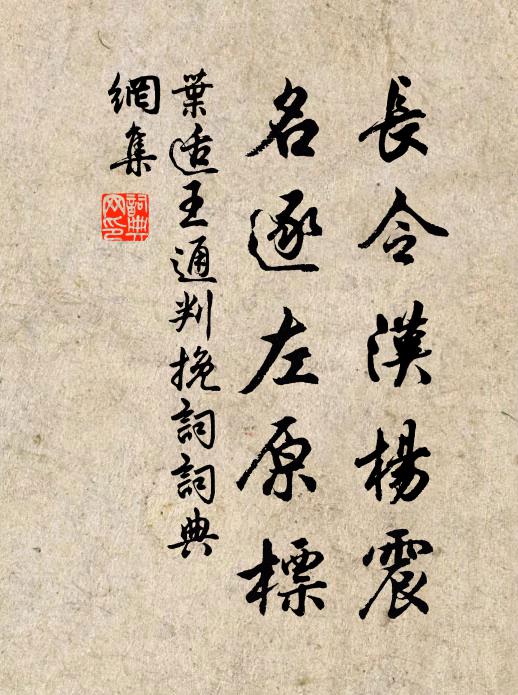 長令漢楊震
名逐左原標
葉适王通判挽詞詞典
網集
詞典
网印